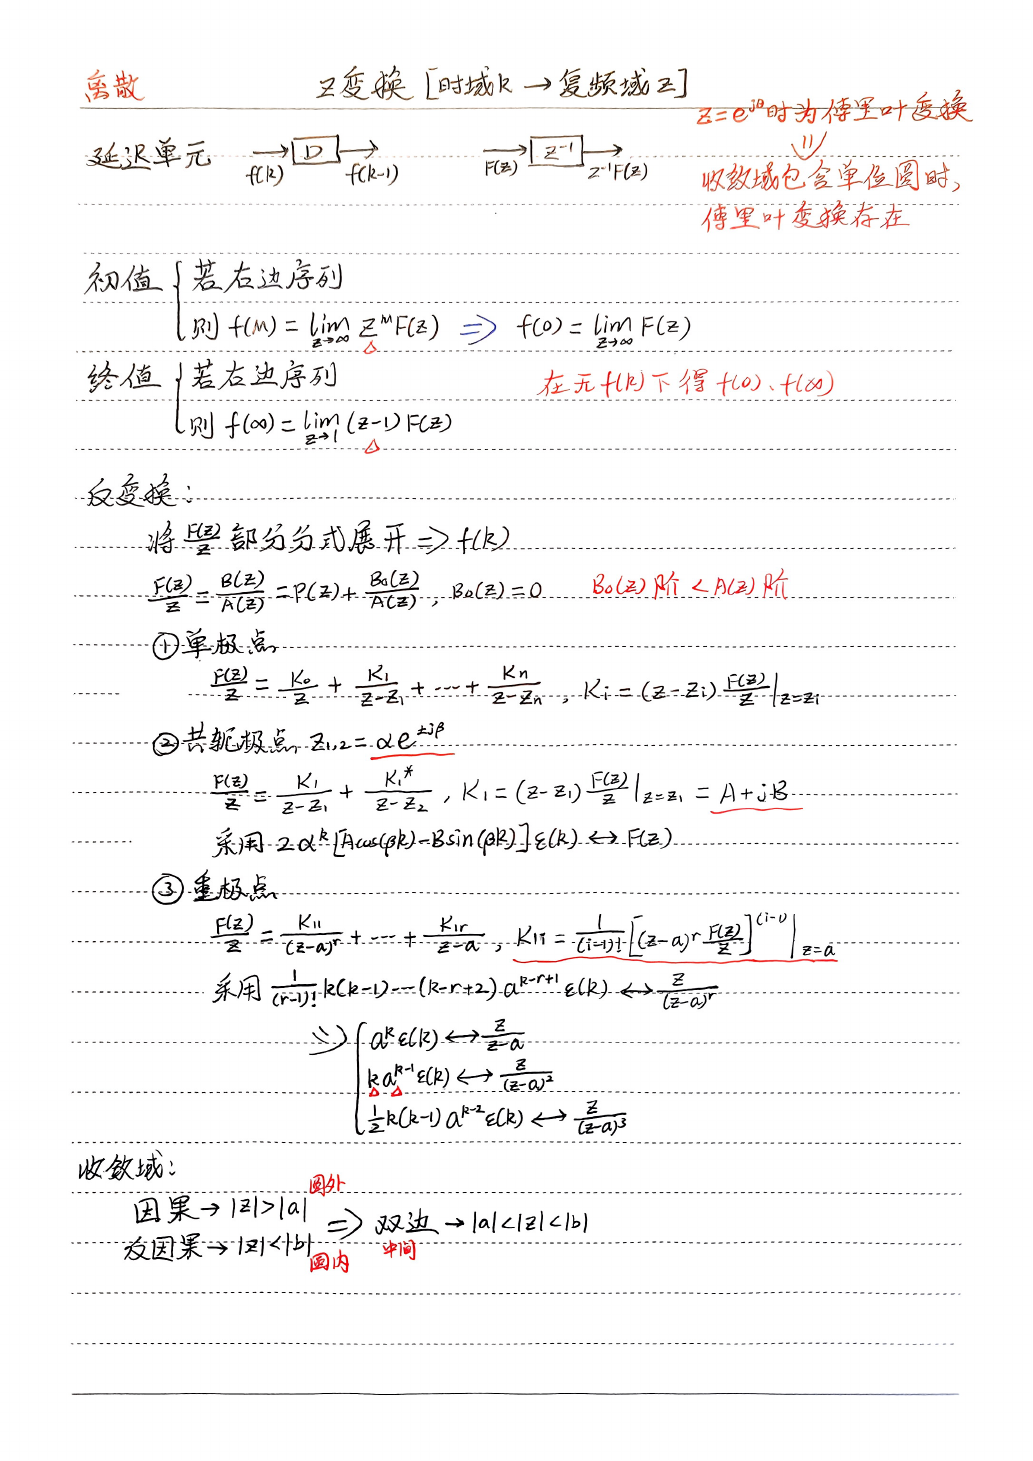 离散
Z变换 [时域k → 复频域Z]
z=e^{jθ}时为傅里叶变换
⇓
收敛域包含单位圆时，
傅里叶变换存在
延迟单元 → D → → z⁻¹ →
f(k) f(k-1) F(z) z⁻¹F(z)
初值 { 若右边序列
则 f(M) = lim_{z→∞} z^M F(z) ⇒ f(0) = lim_{z→∞} F(z)
△
终值 { 若右边序列
在无f(k)下得f(0)、f(∞)
则 f(∞) = lim_{z→1} (z-1)F(z)
△
反变换：
将 F(z)/z 部分分式展开 ⇒ f(k)
F(z)/z = B(z)/A(z) = P(z) + B₀(z)/A(z) , B₀(z)=0 B₀(z)阶 < A(z)阶
① 单极点
F(z)/z = K₀/z + K₁/(z-z₁) + ··· + Kn/(z-zn) , Ki = (z-zi) F(z)/z |_{z=zi}
② 共轭极点 z₁,₂ = αe^{±jβ}
F(z)/z = K₁/(z-z₁) + K₁*/(z-z₂) , K₁ = (z-z₁) F(z)/z |_{z=z₁} = A+jB
采用 2α^k [Acos(βk)-Bsin(βk)] ε(k) ↔ F(z)
③ 重极点
F(z)/z = K₁₁/(z-a)^r + ··· + K₁r/(z-a) , K₁i = 1/(i-1)! [(z-a)^r F(z)/z]^{(i-1)} |_{z=a}
采用 1/(r-1)! k(k-1)···(k-r+2) a^{k-r+1} ε(k) ↔ z/(z-a)^r
⇒ { a^k ε(k) ↔ z/(z-a)
k a^{k-1} ε(k) ↔ z/(z-a)²
△ △
½ k(k-1) a^{k-2} ε(k) ↔ z/(z-a)³
收敛域：
圆外
因果 → |z|>|a|
⇒ 双边 → |a|<|z|<|b|
反因果 → |z|<|b|
圆内 中间